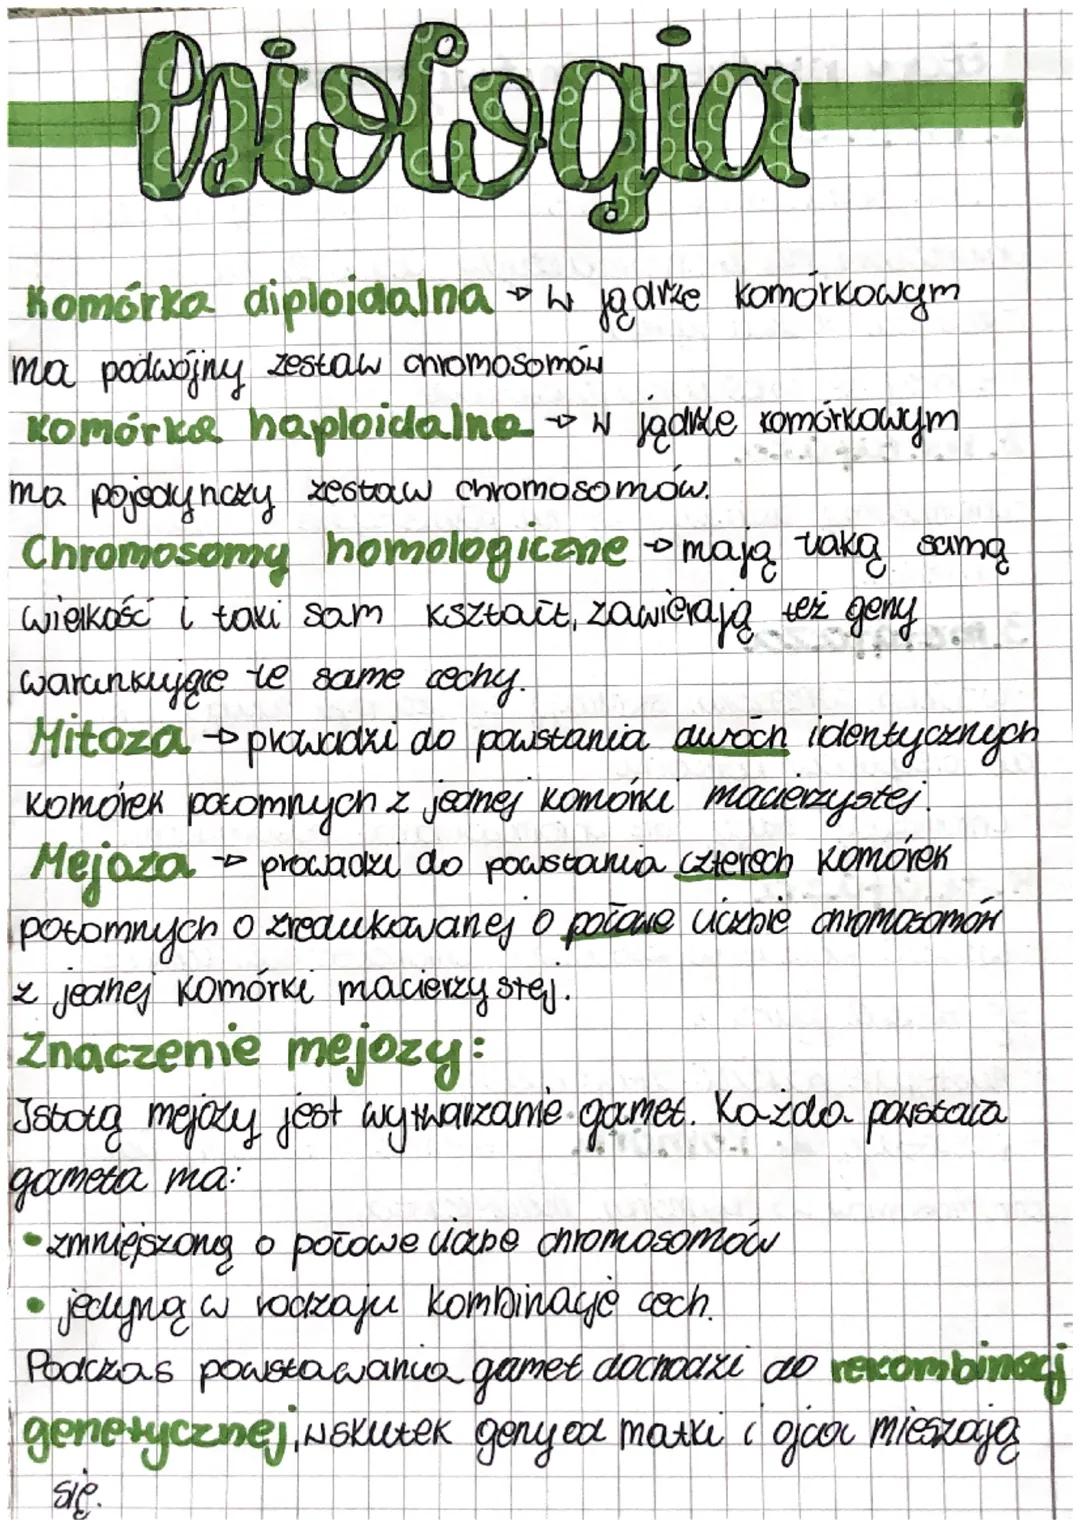 biologia
Komórka diploidalna → w jądrze komórkowym
ma podwójny zestaw chromosomów
Komórka haploidalna → w jądrze komórkowym
ma pojedynczy zestaw chromosomów.
Chromosomy homologiczne → mają taką samą
wielkość i taki sam kształt, zawierają też geny
warunkujące te same cechy.
Mitoza → prowadzi do powstania dwóch identycznych
komórek potomnych z jednej komórki macierzystej.
Mejoza → prowadzi do powstania czterech komórek
potomnych o zredukowanej o połowe liczbie chromosomów
z jednej komórki macierzystej.
Znaczenie mejozy:
Istotą mejozy jest wytwarzanie gamet. Każda powstała
gameta ma:
• zmniejszoną o połowe liczbe chromosomów
• jedyną w rodzaju kombinacje cech.
Podczas powstawania gamet dochodzi do rekombinacji
genetycznej, wskutek geny od matki i ojca mieszają
się.